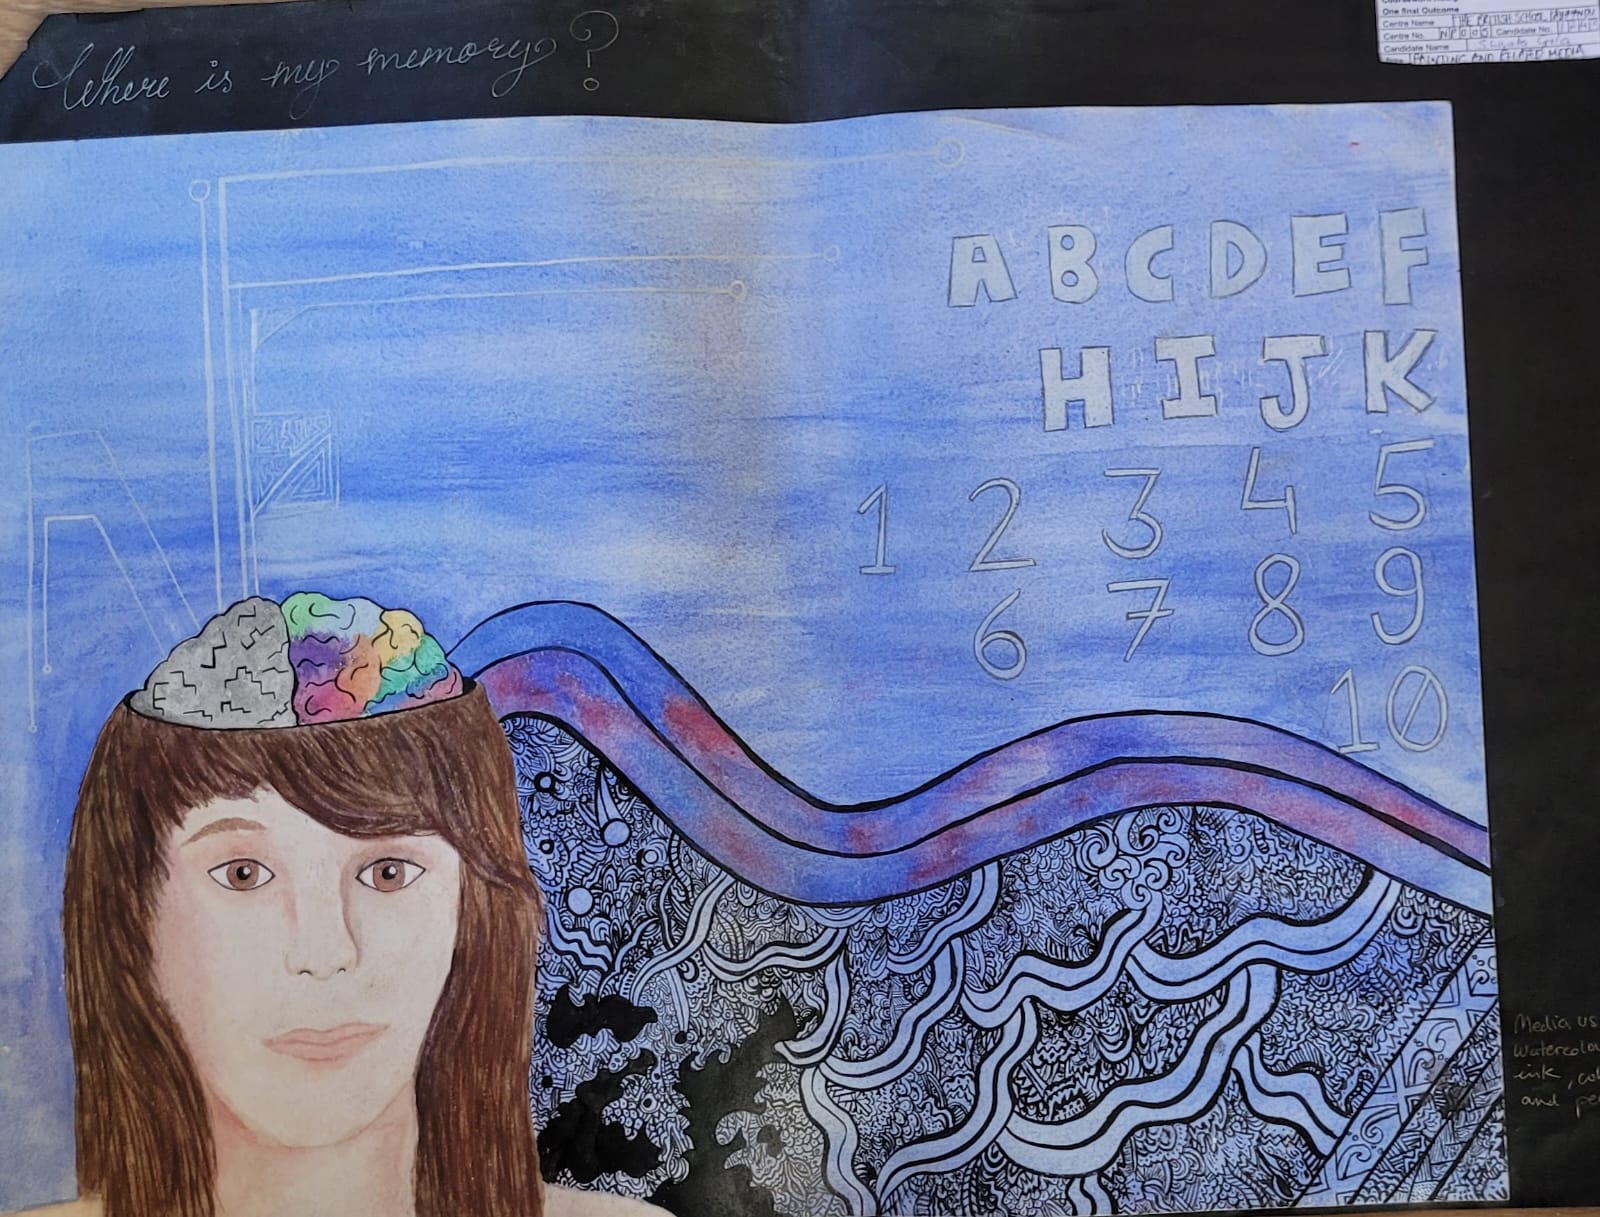 Where is my memory?
One final Outcome
Centre Name THE BRITISH SCHOOL
Centre No. Candidate No.
Candidate Name
PAINTING AND RELATED MEDIA
N
A B C D E F
H I J K
1 2 3 4 5
6 7 8 9
10
Media us
Watercolou
ink, col
and pe